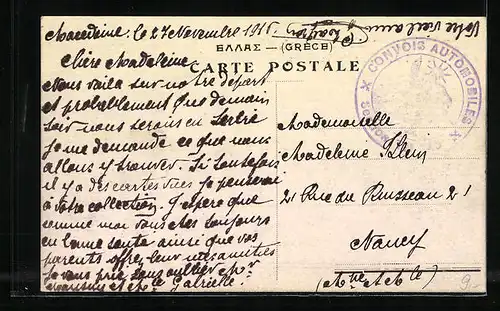 Macedoine, le 27 Novembre 1915
Votre vieil ami
ΕΛΛΑΣ — (GRÈCE)
CARTE POSTALE
CONVOIS AUTOMOBILES
Chère Madeleine
Nous voila sur notre départ
et probablement que demain
soir nous serons en Serbie
je me demande ce que nous
allons y trouver. Si toutefois
il y a des cartes vues je penserai
à votre collection. J'espère que
comme moi vous êtes toujours
en bonne santé ainsi que vos
parents offrez leur mes amitiés
je vous prie sans oublier Mr
et Me Gabrielle.
Mademoiselle
Madeleine
21 Rue du Ruisseau 21
Nancy
(Mthe et Mlle)